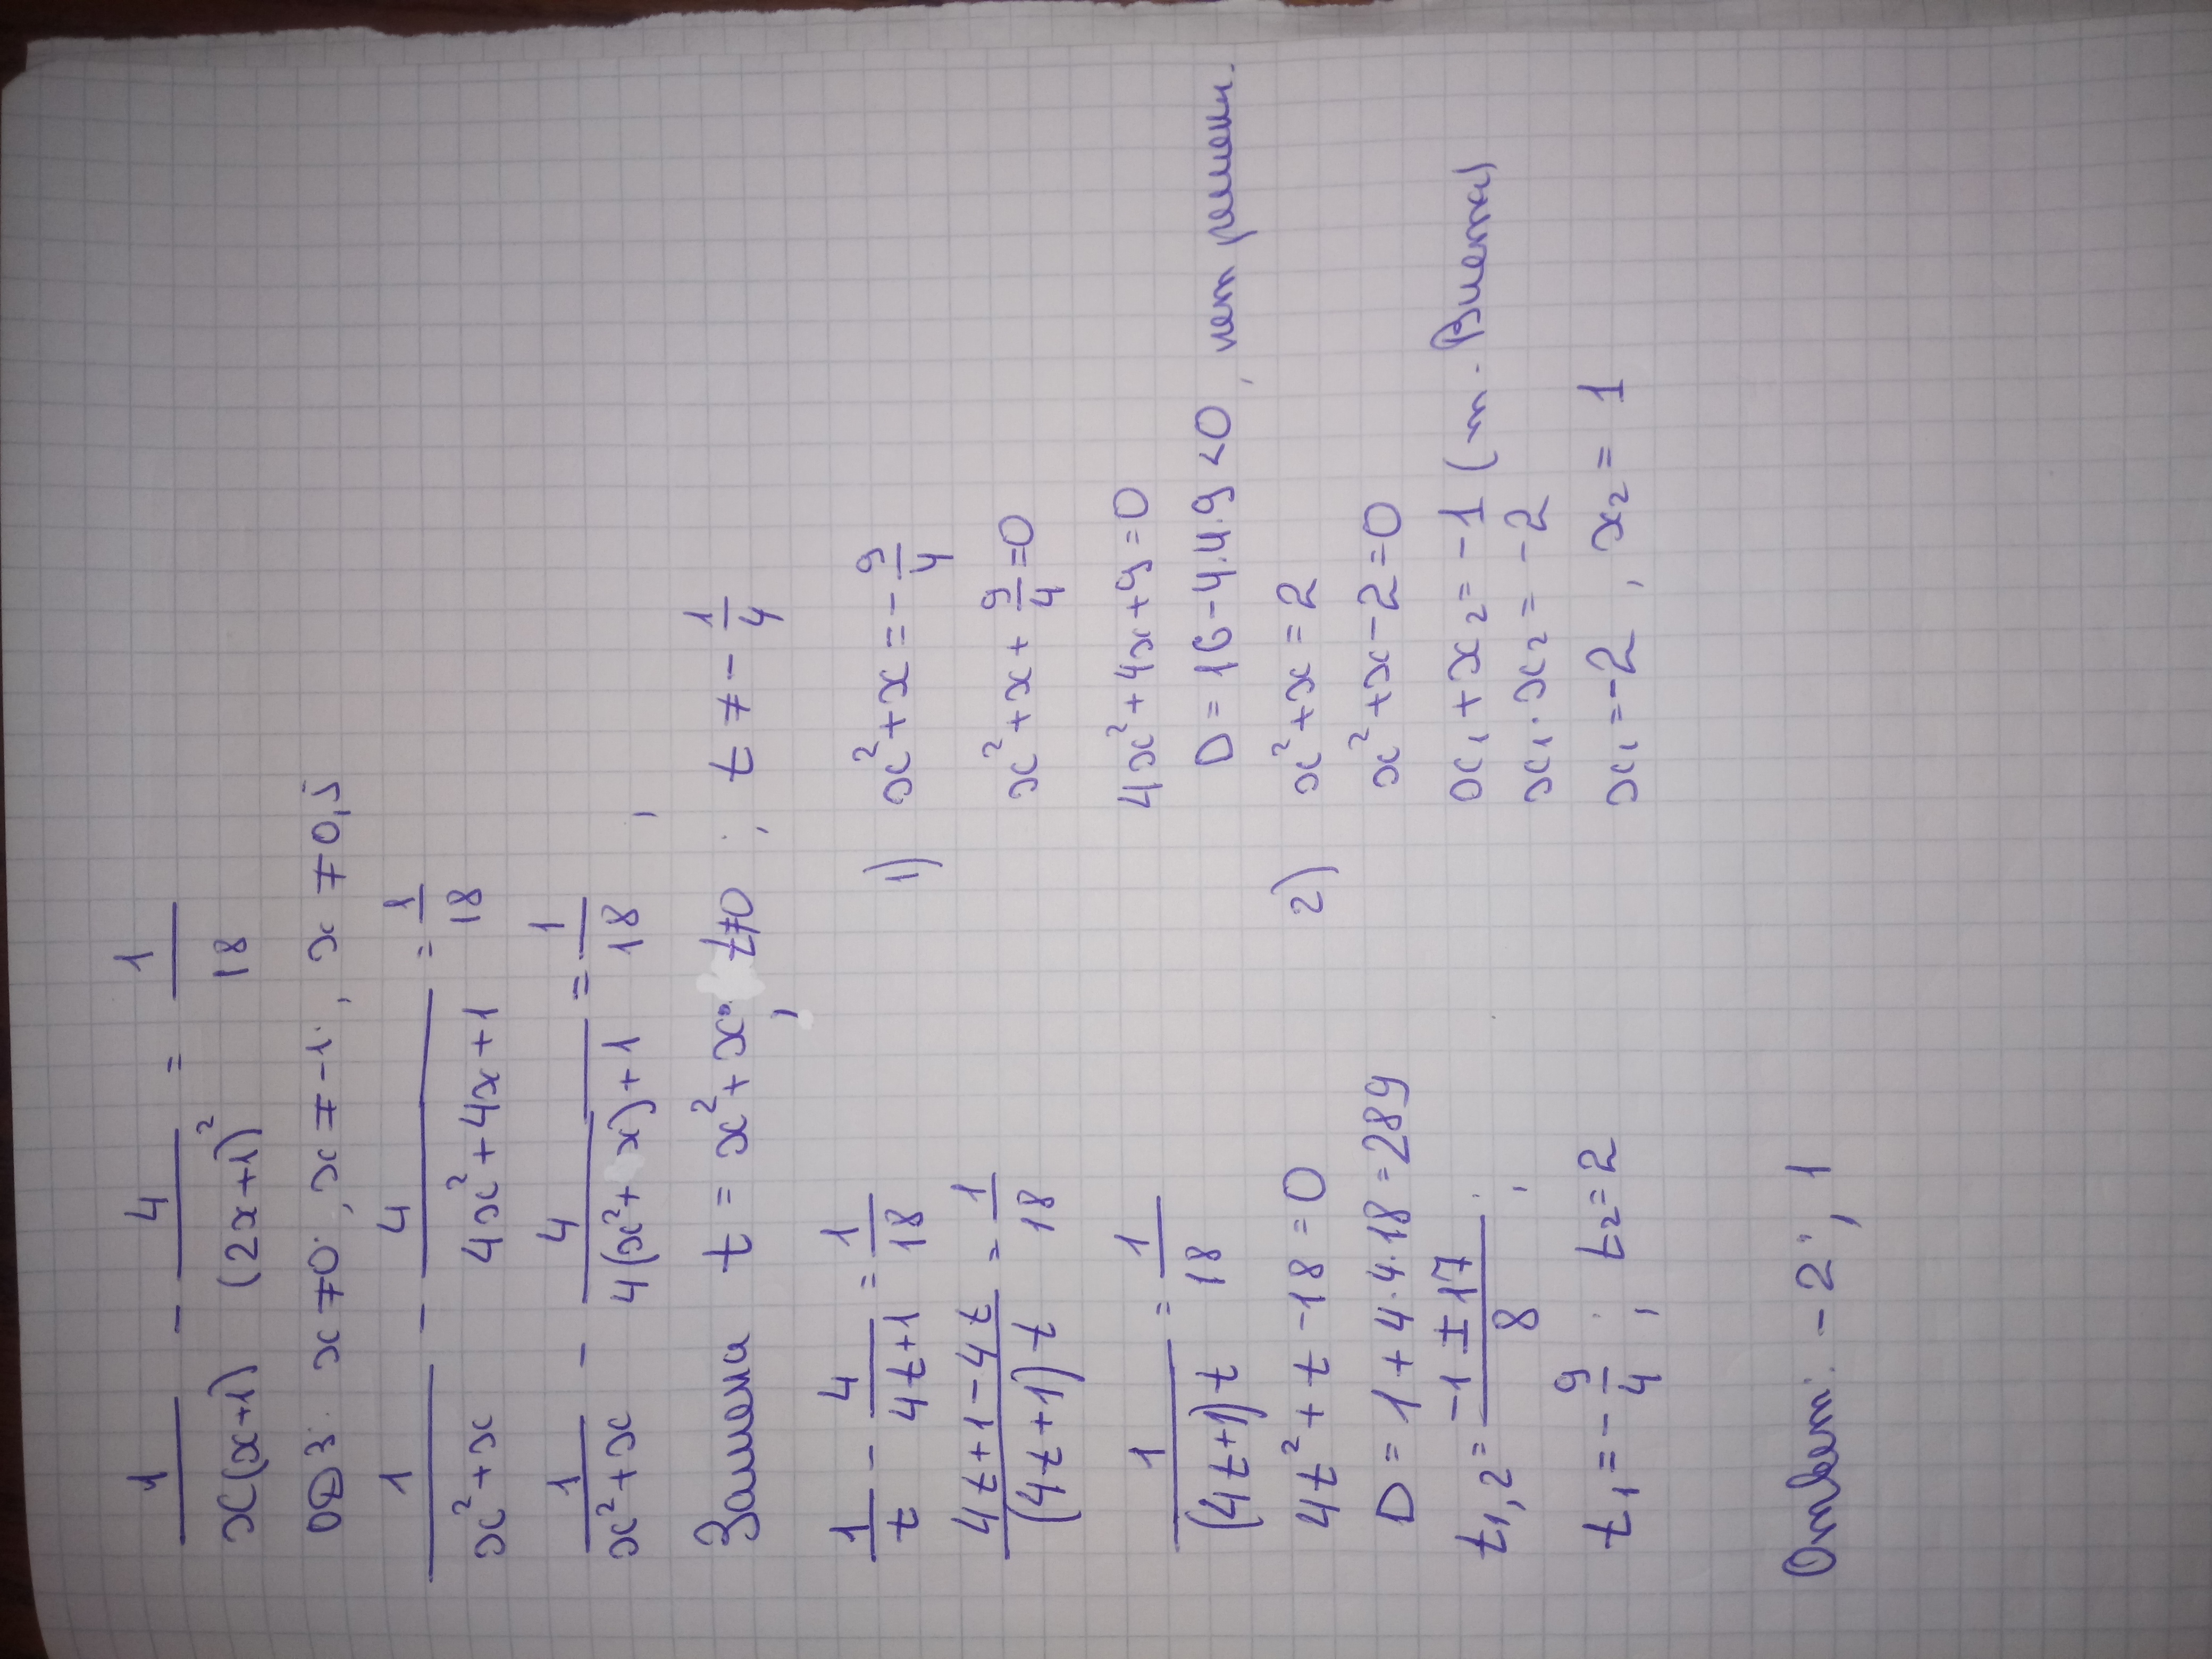 1/(x(x+1)) - 4/(2x+1)² = 1/18
ОДЗ: x ≠ 0; x ≠ -1; x ≠ 0,5
1/(x²+x) - 4/(4x²+4x+1) = 1/18
1/(x²+x) - 4/(4(x²+x)+1) = 1/18,
Замена t = x²+x; t≠0; t ≠ -1/4
1/t - 4/(4t+1) = 1/18
(4t+1-4t)/((4t+1)t) = 1/18
1/((4t+1)t) = 1/18
4t²+t-18=0
D = 1+4·4·18=289
t1,2 = (-1±17)/8;
t1 = -9/4; t2=2
1) x²+x = -9/4
x²+x+9/4=0
4x²+4x+9=0
D = 16-4·4·9<0, нет решен.
2) x²+x=2
x²+x-2=0
x1+x2=-1 (т. Виета)
x1·x2=-2
x1=-2, x2=1
Ответ: -2; 1